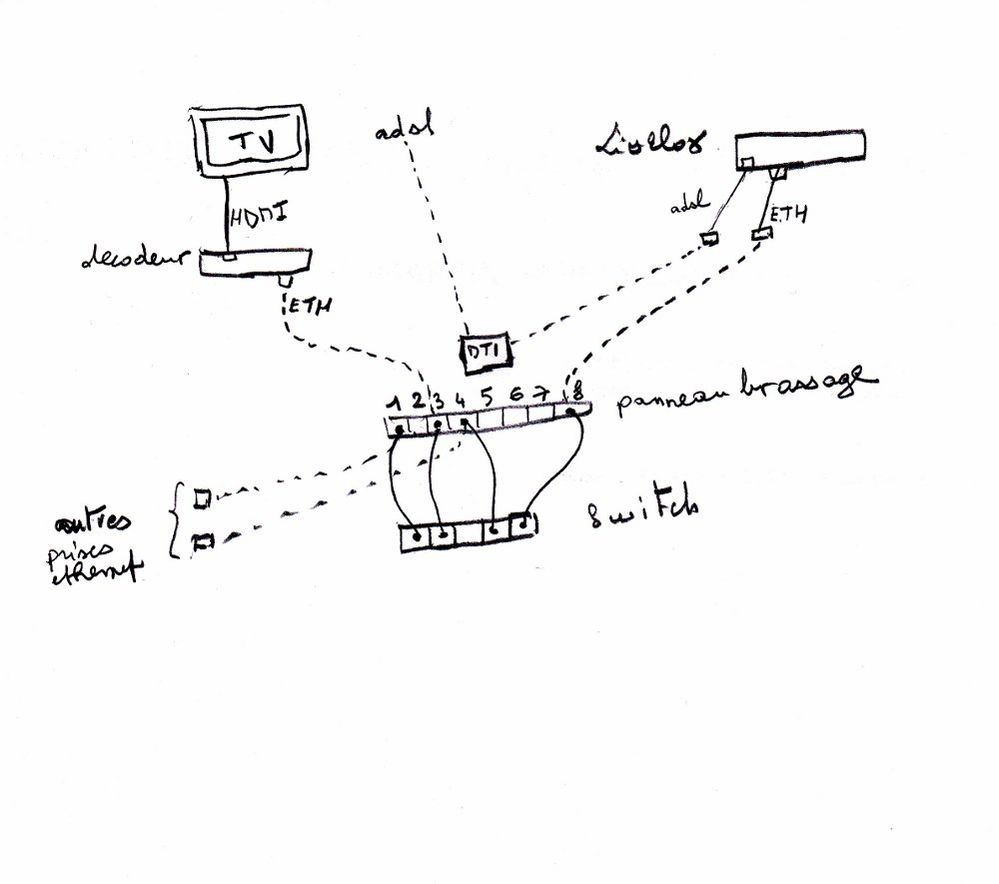 TV
adsl
Livebox
HDMI
adsl
ETH
decodeur
ETH
DTI
1 2 3 4 5 6 7 8
panneau brassage
Switch
autres
prises
ethernet